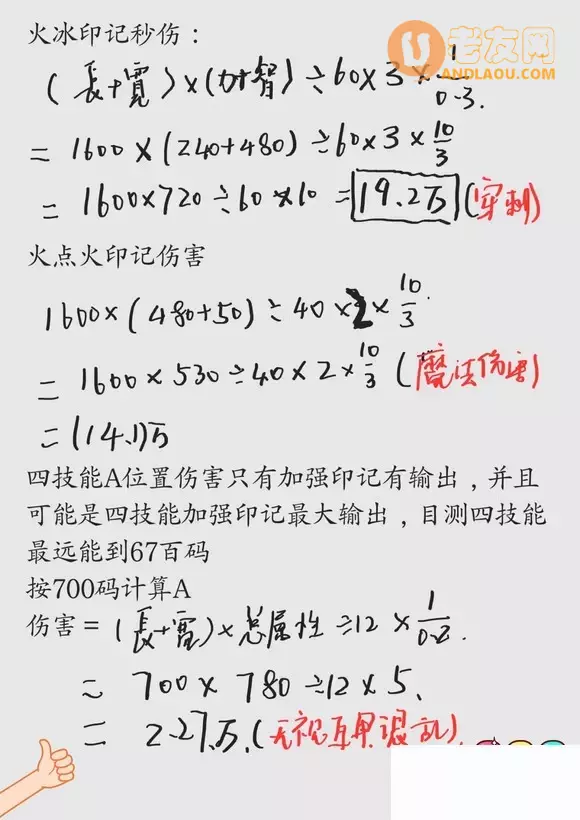 火冰印记秒伤：
老友网
ANDLAOU.COM
(長+寬)×(力+智)÷60×3×1/0.3.
=1600×(240+480)÷60×3×10/3
=1600×720÷60×10=19.2万(穿刺)
火点火印记伤害
1600×(480+50)÷40×2×10/3.
=1600×530÷40×2×10/3(魔法伤害)
=(14.1)万
四技能A位置伤害只有加强印记有输出，并且
可能是四技能加强印记最大输出，目测四技能
最远能到67百码
按700码计算A
伤害=(長+寬)×总属性÷12×1/0.2.
=700×780÷12×5.
=22.7万.(无视互甲混乱)